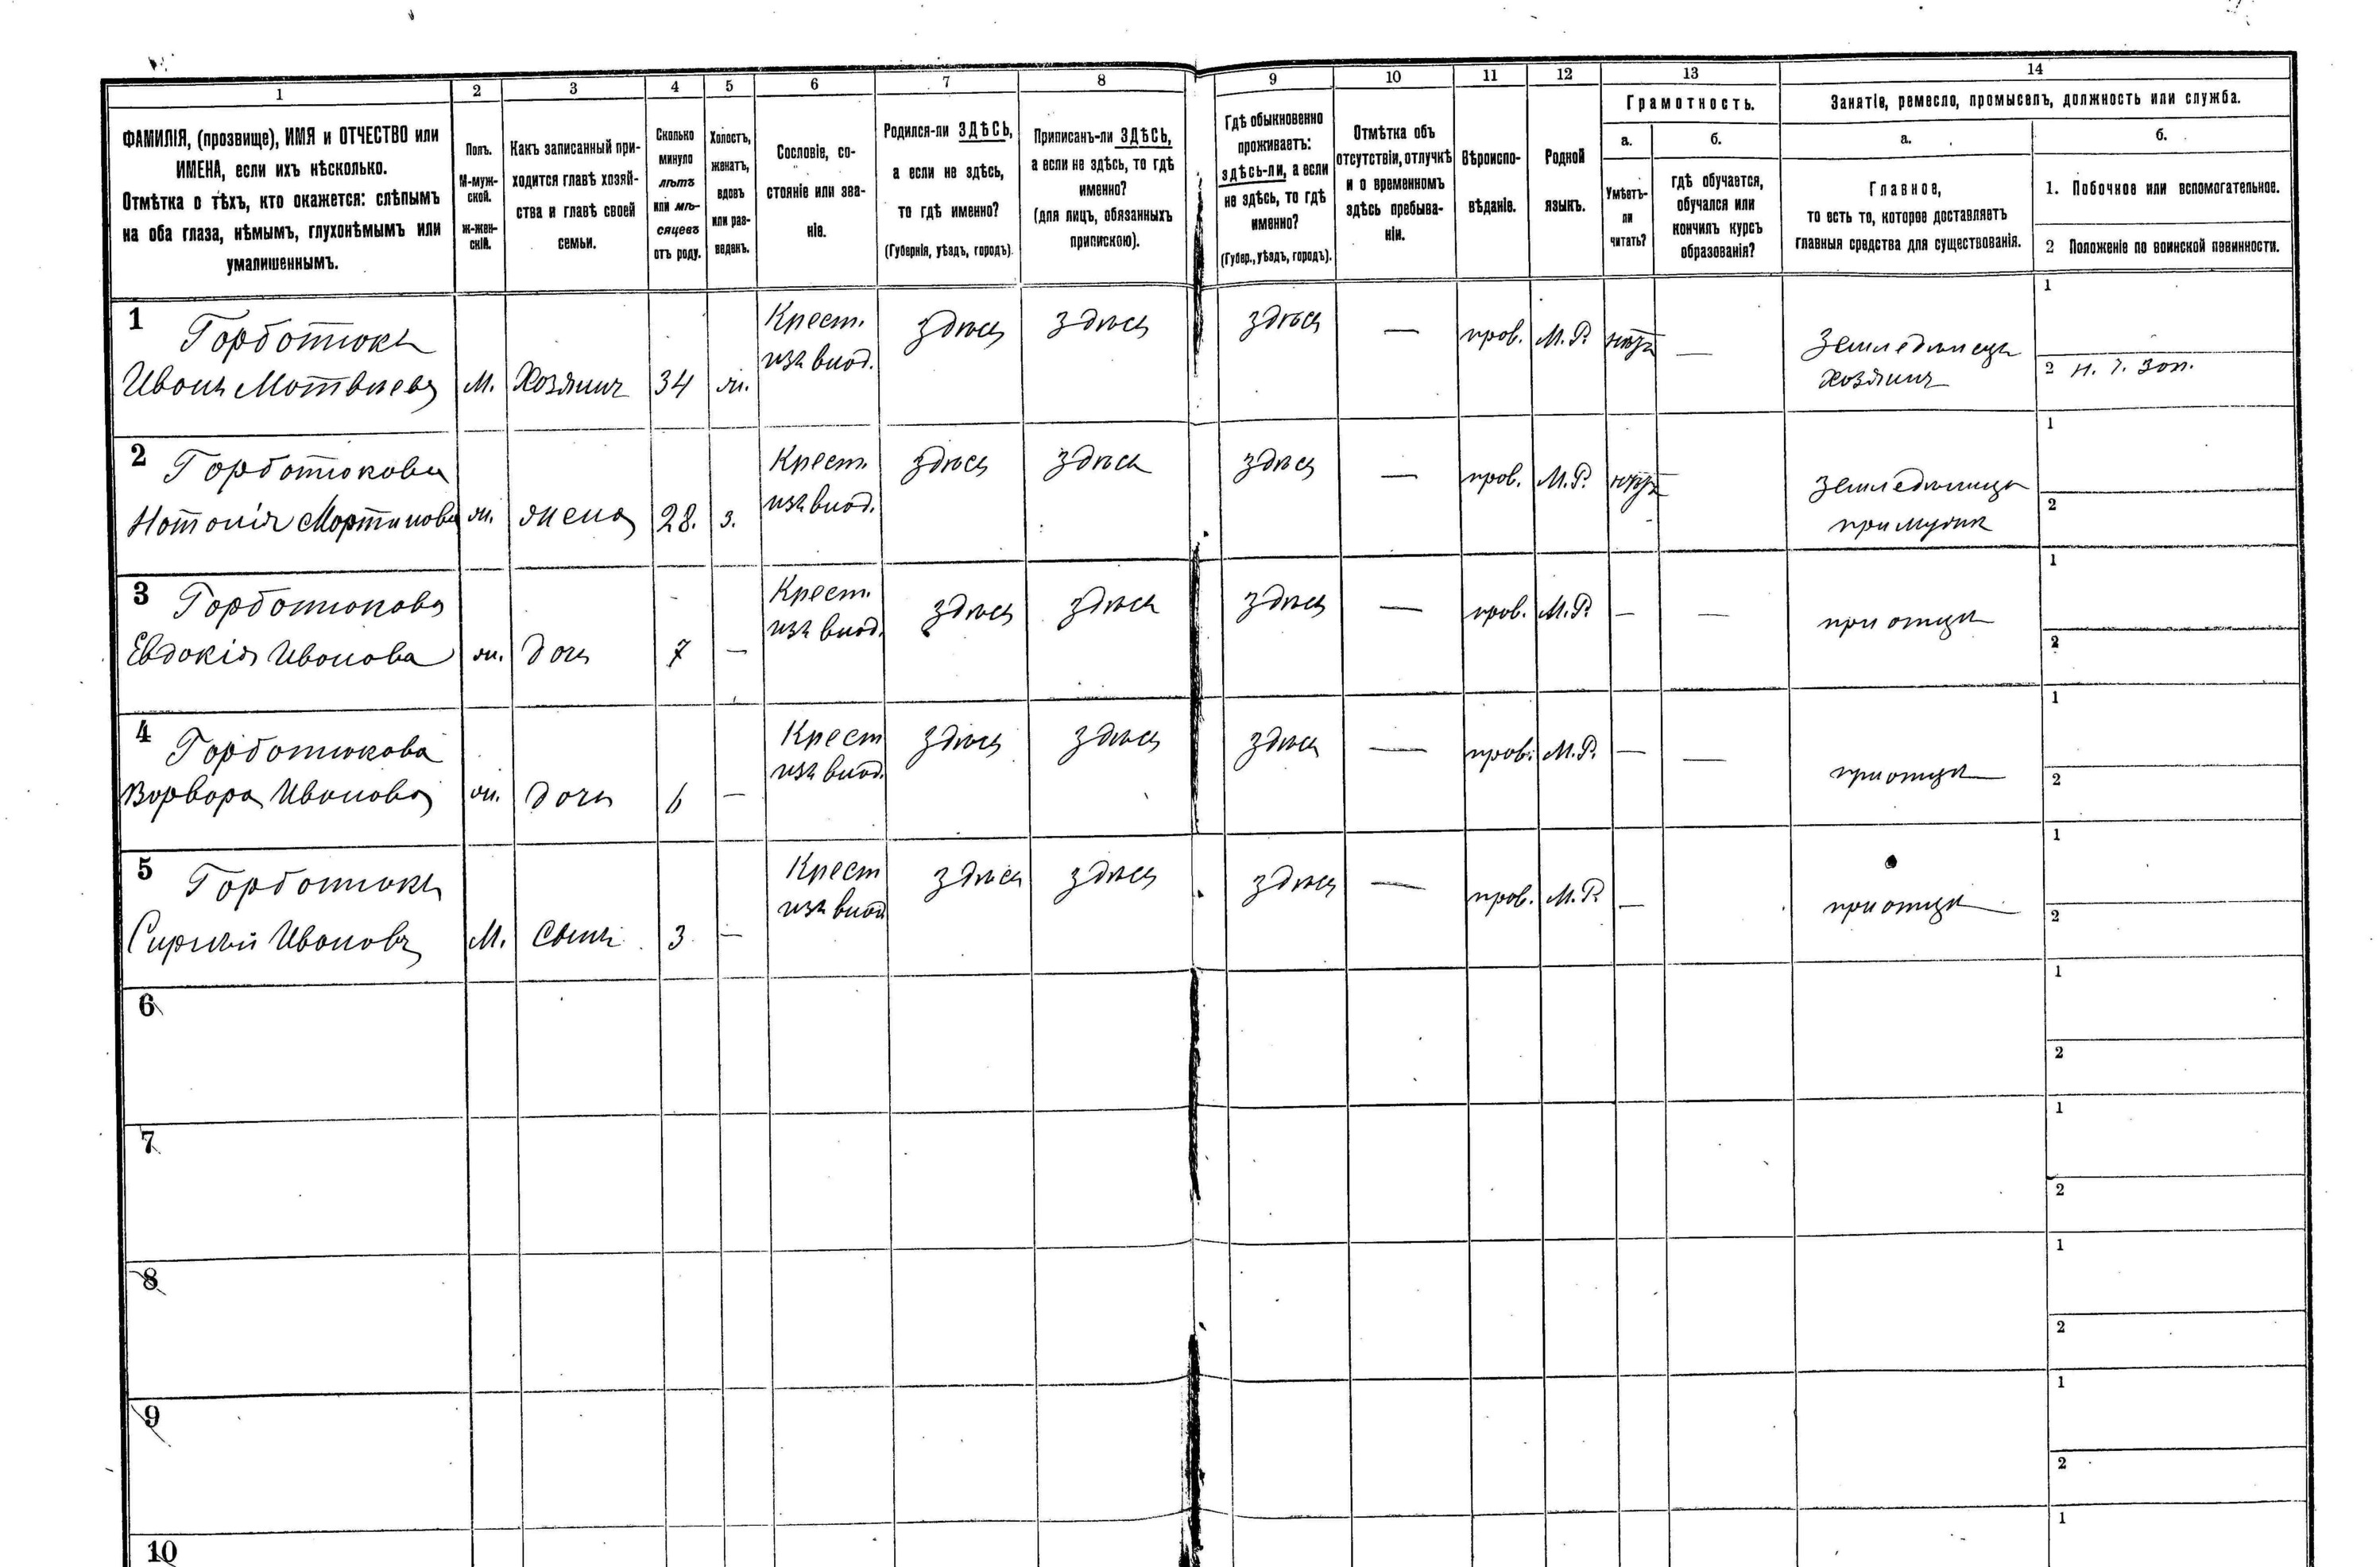 1 2 3 4 5 6 7 8 9 10 11 12 13 14
ФАМИЛІЯ, (прозвище), ИМЯ и ОТЧЕСТВО или
ИМЕНА, если ихъ нѣсколько.
Отмѣтка о тѣхъ, кто окажется: слѣпымъ
на оба глаза, нѣмымъ, глухонѣмымъ или
умалишеннымъ.
Полъ.
М-муж-
ской.
Ж-жен-
скій.
Какъ записанный при-
ходится главѣ хозяй-
ства и главѣ своей
семьи.
Сколько
минуло
лѣтъ
или мѣ-
сяцевъ
отъ роду.
Холостъ,
женатъ,
вдовъ
или раз-
веденъ.
Сословіе, со-
стояніе или зва-
ніе.
Родился-ли ЗДѢСЬ,
а если не здѣсь,
то гдѣ именно?
(Губернія, уѣздъ, городъ).
Приписанъ-ли ЗДѢСЬ,
а если не здѣсь, то гдѣ
именно?
(для лицъ, обязанныхъ
припискою).
Гдѣ обыкновенно
проживаетъ:
здѣсь-ли, а если
не здѣсь, то гдѣ
именно?
(Губер., уѣздъ, городъ).
Отмѣтка объ
отсутствіи, отлучкѣ
и о временномъ
здѣсь пребыва-
ніи.
Вѣроиспо-
вѣданіе.
Родной
языкъ.
Грамотность.
а.
Умѣетъ-
ли
читать?
б.
гдѣ обучается,
обучался или
кончилъ курсъ
образованія?
Занятіе, ремесло, промыселъ, должность или служба.
а.
Главное,
то есть то, которое доставляетъ
главныя средства для существованія.
б.
1. Побочное или вспомогательное.
2 Положеніе по воинской повинности.
1 Горботюкъ
Иванъ Матвѣевъ
М. Хозяинъ 34 ж.
Крест.
изъ влад.
здѣсь здѣсь здѣсь — пров. М.Р. нѣтъ —
Земледѣлецъ
хозяинъ
1
2 н. ч. зап.
2 Горботюкова
Наталія Мартинова
ж. жена 28. з.
Крест.
изъ влад.
здѣсь здѣсь здѣсь — пров. М.Р. нѣтъ
земледѣлица
при мужѣ
1
2
3 Горботюкова
Евдокія Иванова
ж. дочь 7 —
Крест.
изъ влад.
здѣсь здѣсь здѣсь — пров. М.Р. — —
при отцѣ
1
2
4 Горботюкова
Варвара Иванова
ж. дочь 6 —
Крест
изъ влад.
здѣсь здѣсь здѣсь — пров. М.Р. — —
при отцѣ
1
2
5 Горботюкъ
Сиргѣй Ивановъ
М. сынъ 3 —
Крест
изъ влад
здѣсь здѣсь здѣсь — пров. М.Р. —
при отцѣ
1
2
6
1
2
7
1
2
8
1
2
9
1
2
10
1